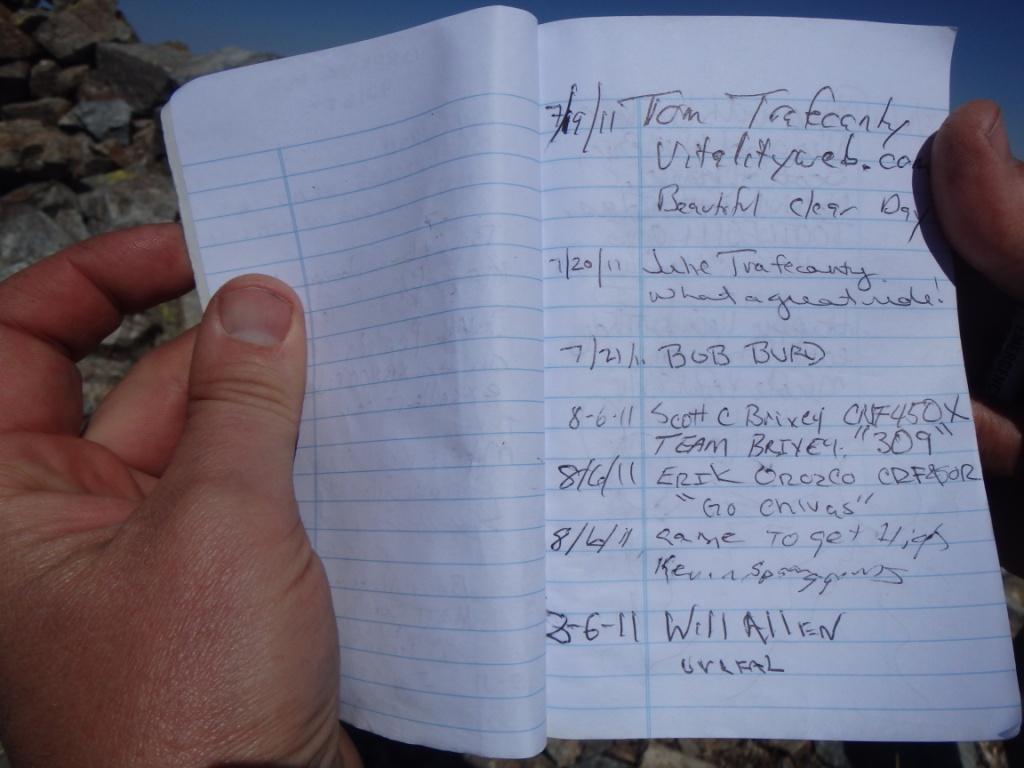 7/19/11 Tom Trafecanty
Vitalityweb.com
Beautiful Clear Day
7/20/11 Julie Trafecanty
What a great ride!
7/21/11 BOB BURD
8-6-11 Scott C Brixey CRF450X
TEAM BRIXEY. "309"
8/6/11 ERIK OROZCO CRF250R
"Go Chivas"
8/6/11 came To get High
Kevin
8-6-11 Will AllEN